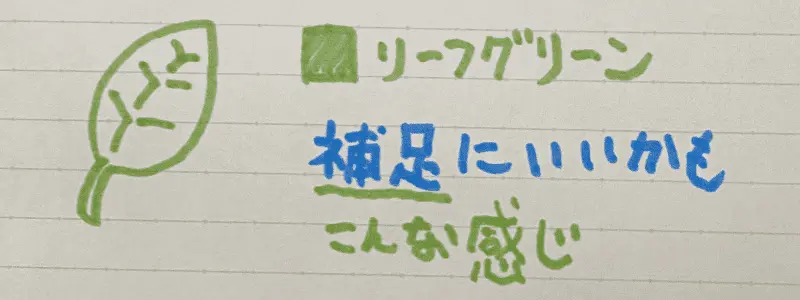 リーフグリーン
補足にいいかも
こんな感じ